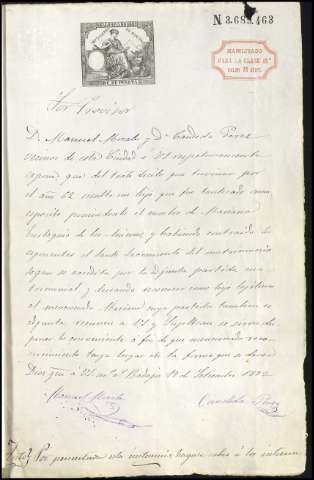 N 3.683.463
HABILITADO
Sor Provisor
D. Manuel Morato y Dª Candida Perez
vecinos de esta Ciudad á VS respetuosamente
esponen que del trato ilicito que tuvieron por
el año 62 resultó un hijo que fue bautizado como
esposito poniendosele el nombre de Mariano
y habiendo contraido los
esponentes el Santo Sacramento del matrimonio
segun se acredita por la adjunta partida ma
trimonial y deseando reconocer como hijo legitimo
al mencionado Mariano cuya partida tambien es
adjunta recurren á VS y Suplican se sirva dis
poner lo conveniente á fin de que mencionado reco
nocimiento tenga lugar en la forma que se
Dios gue á VS ms as Badajoz 18 de Setiembre 1872
Manuel Morato Candida Perez
Por presentada esta instancia hagase saber á los interesa